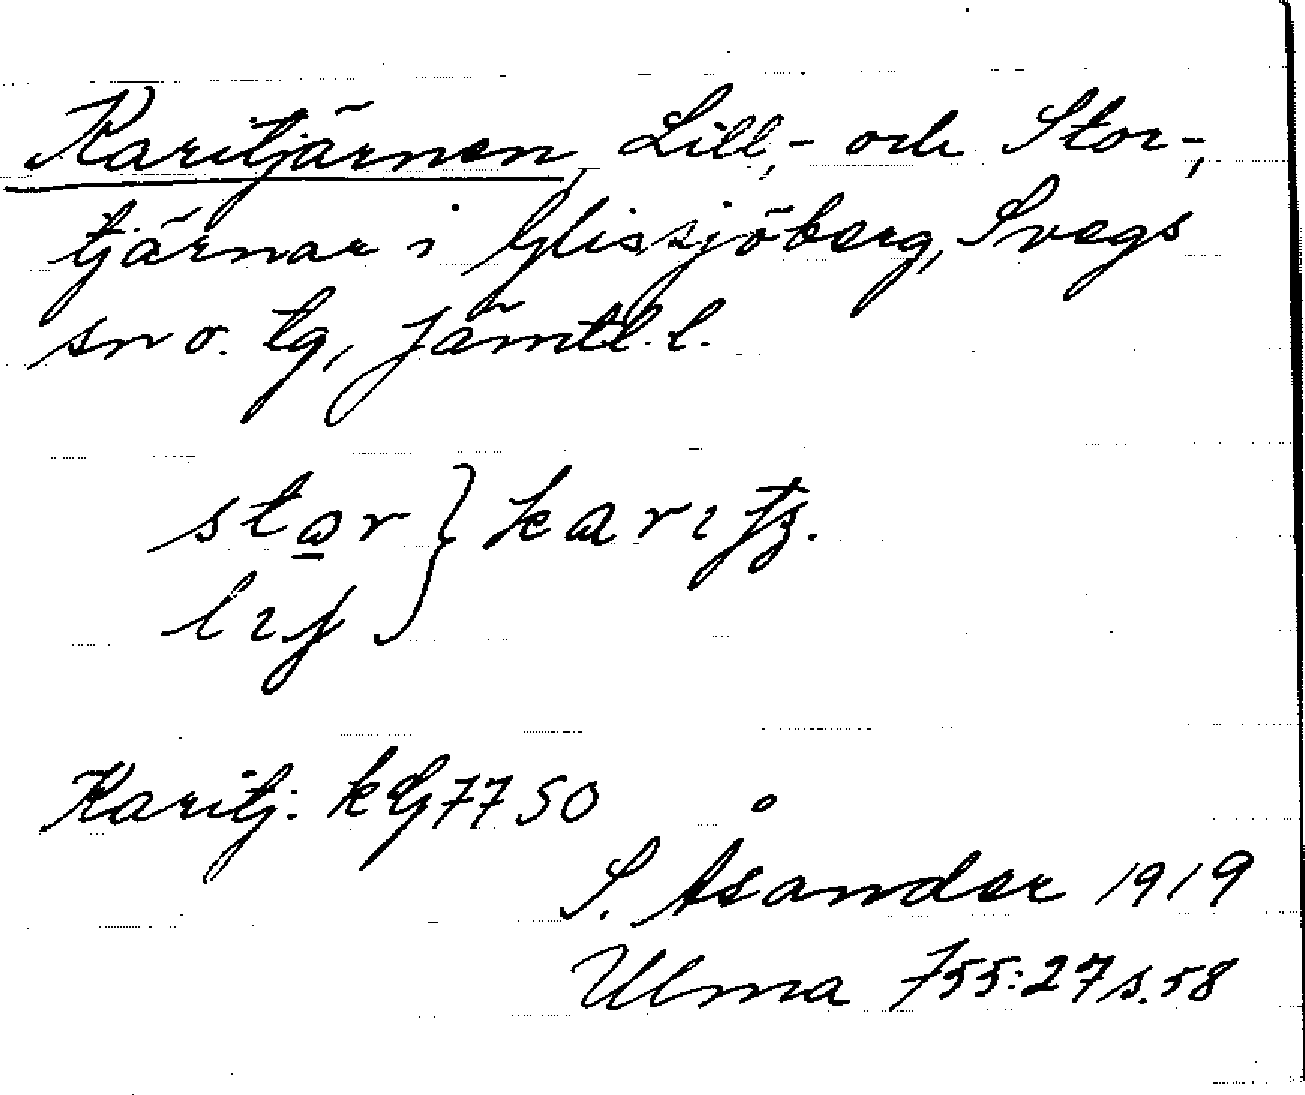 Karitjärnen, Lill,- och Stor-,
tjärnar i Glissjöberg, Svegs
sn o. tg, Jämtl. l.
star } kari
Karitj. kG 7750
S. Åsander 1919
Ulma 755:27 s. 58